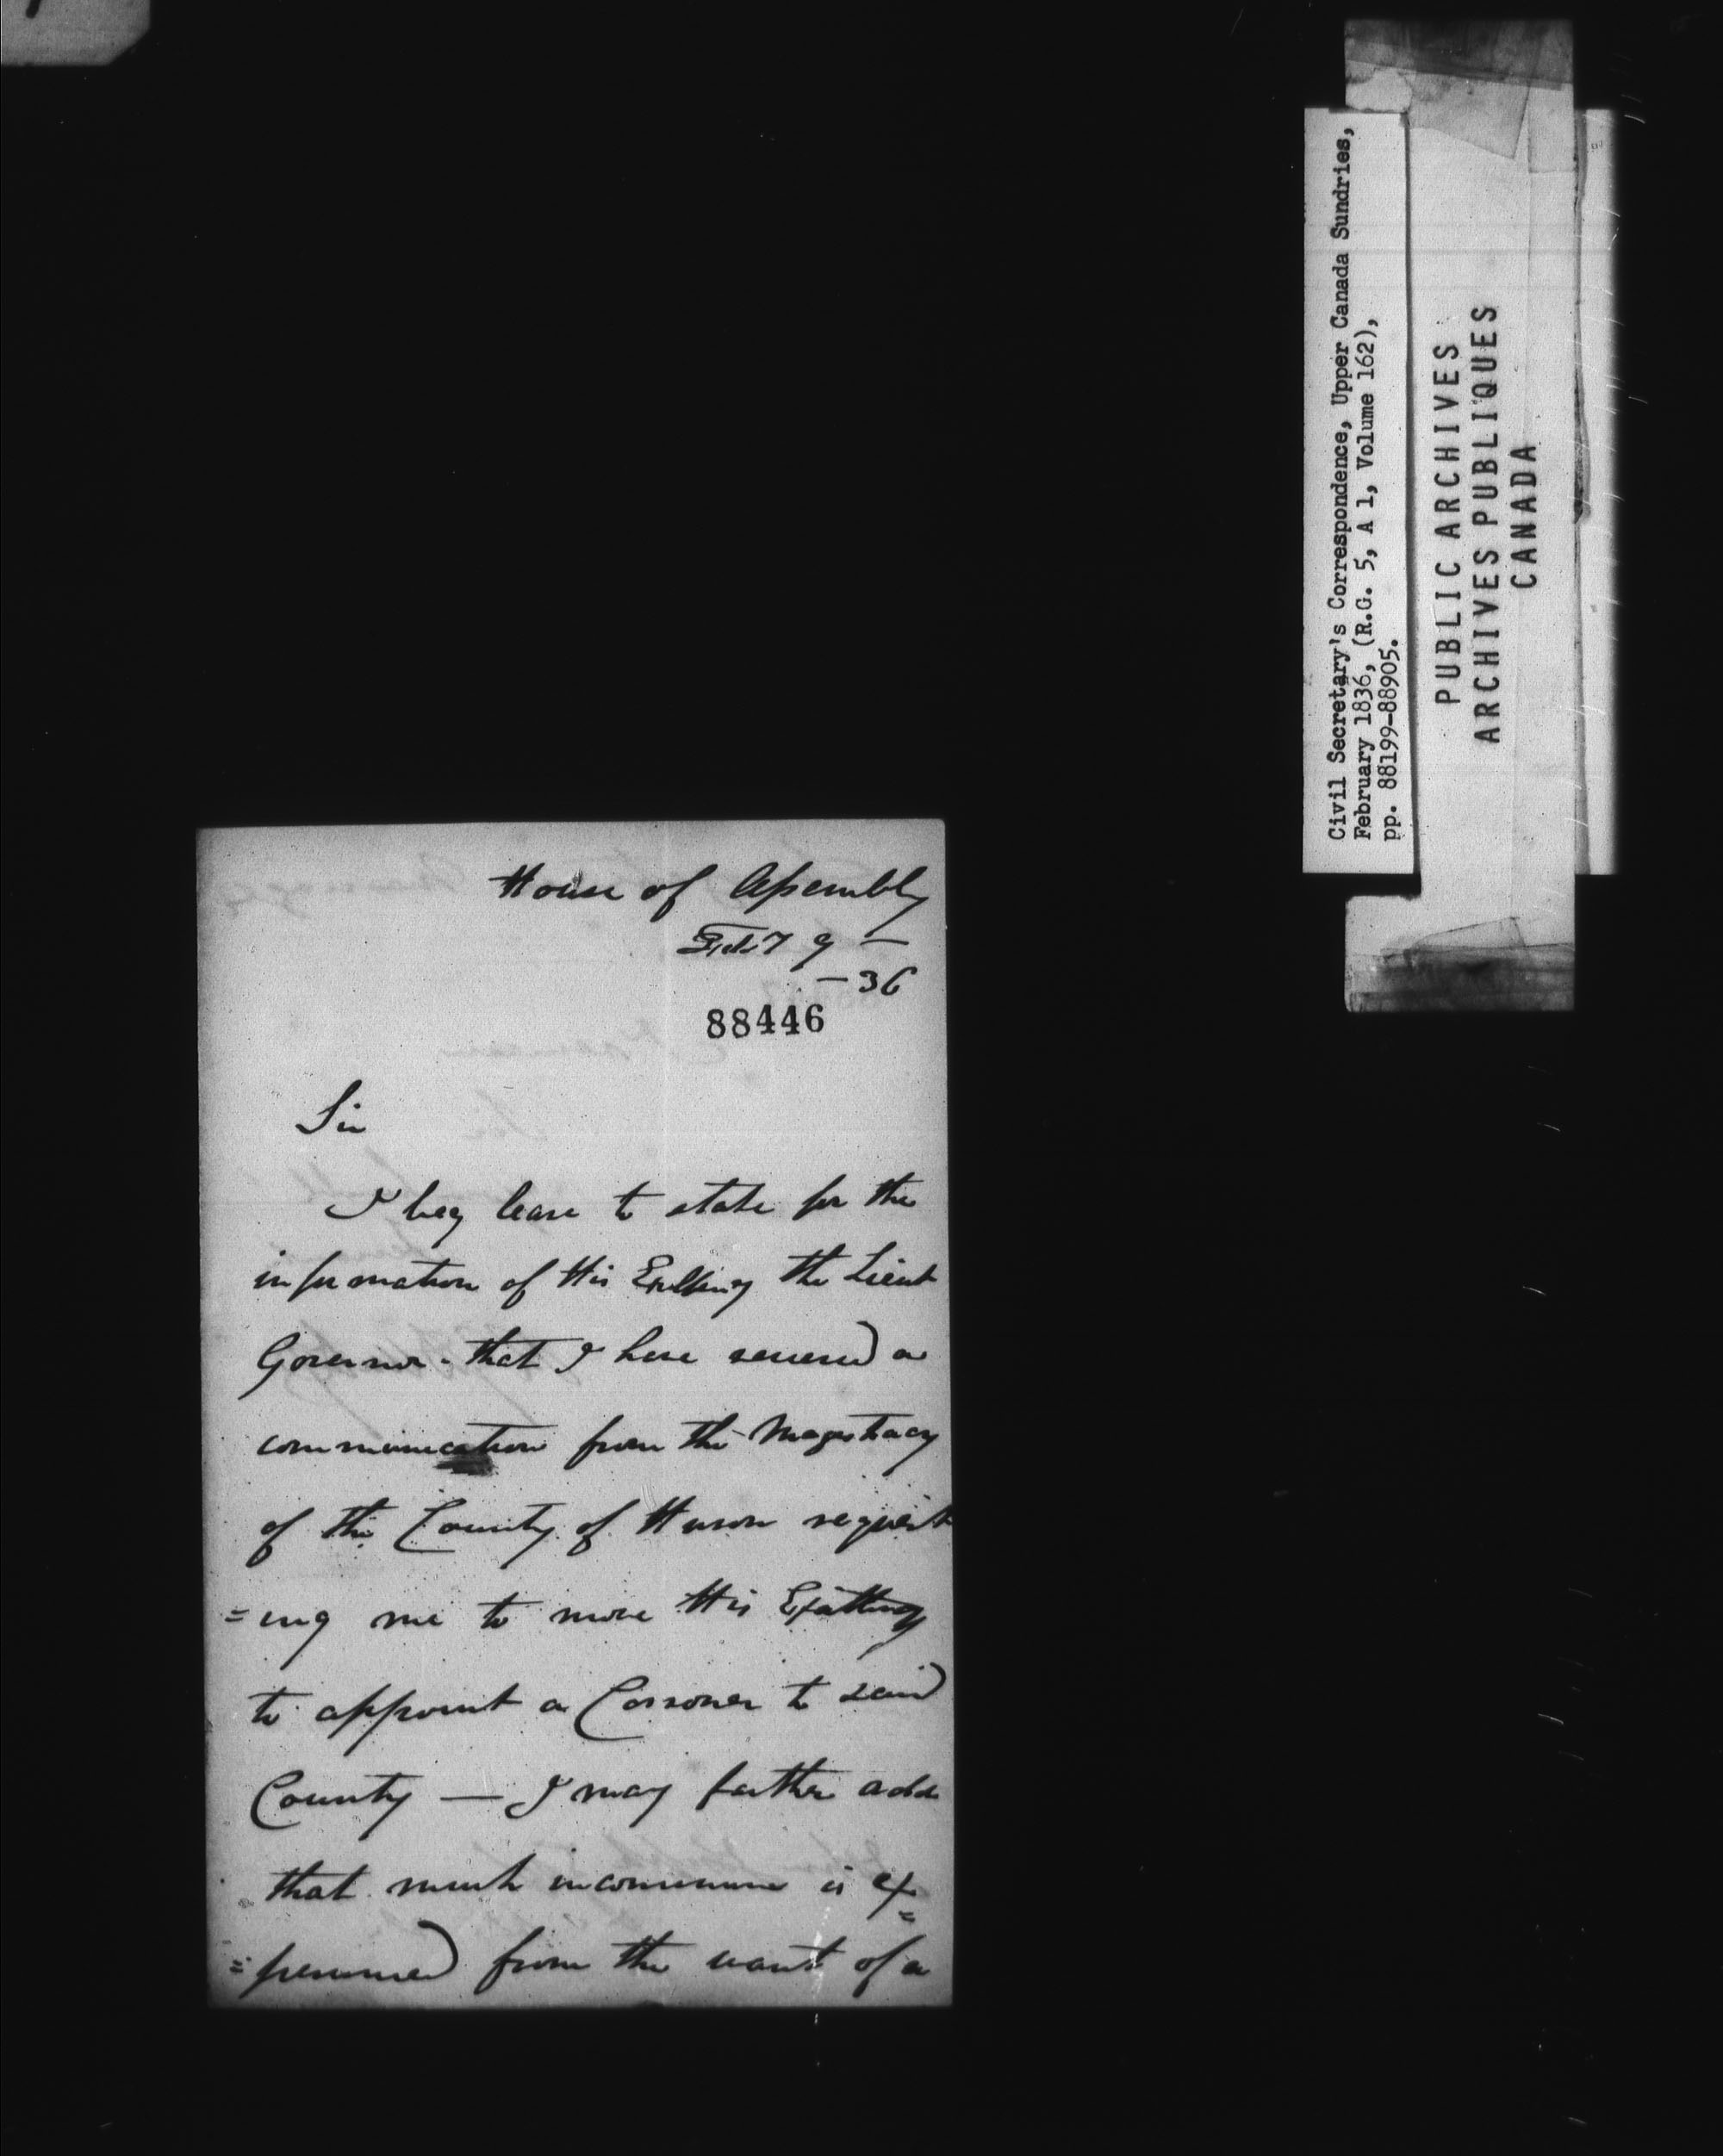 House of Assembly
Feby 9 —
— 36
88446
Sir
I beg leave to state for the
information of His Excellency the Lieut
Governor - that I have received a
communication from the Magistracy
of the County of Huron request
=ing me to move His Excellency
to appoint a Corroner to said
County — I may farther add
that much inconvenience is ex=
=perienced from the want of a
Civil Secretary's Correspondence, Upper Canada Sundries,
February 1836, (R.G. 5, A 1, Volume 162),
pp. 88199-88905.
PUBLIC ARCHIVES
ARCHIVES PUBLIQUES
CANADA